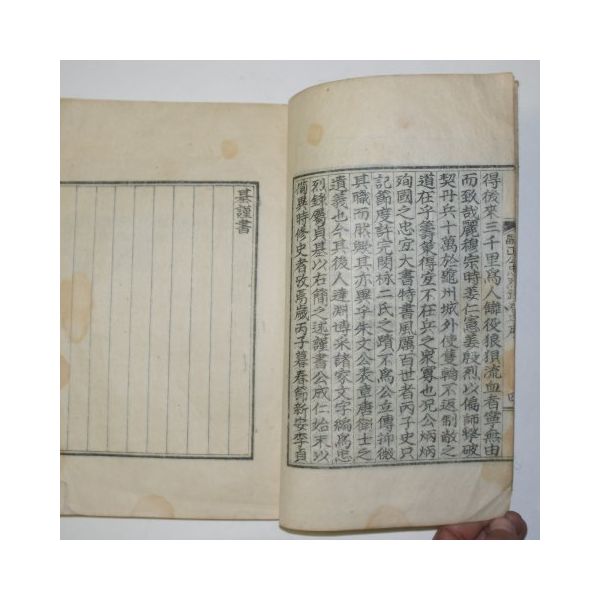 得後來三千里爲人雠役狼狽流血者寧無由
而致哉麗穆宗時姜仁憲姜殷烈以偏師擊破
契丹兵十萬於龜州城外使隻輪不返制敵之
道在乎籌筭得宜不在兵之衆寡也况公炳炳
殉國之忠宜大書特書風厲百世者丙子史只
記節度許完閔栐二氏之蹟不爲公立傳抑微
其職而然歟其亦異乎朱文公表章唐衛士之
遺義也今其後人達淵博采諸家文字編爲忠
烈錄屬貞基以右簡之述謹書公成仁始末以
備異時修史者攷焉歲丙子暮春節新安李貞
基謹書
四